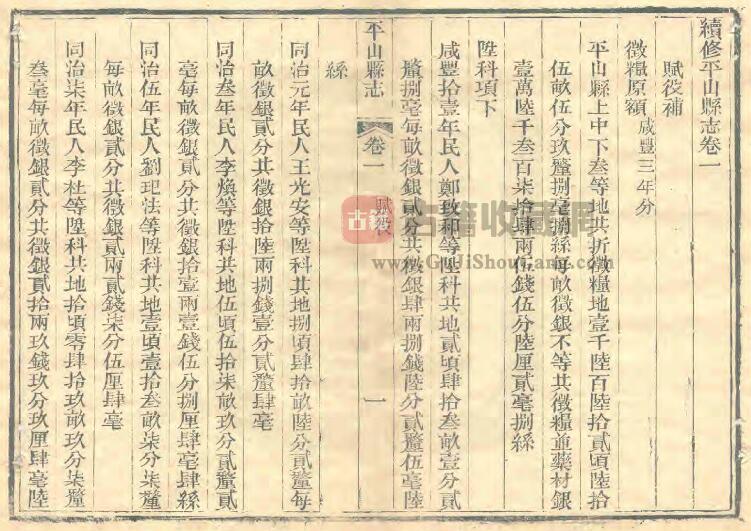 續修平山縣志卷一
賦役補
徵糧原額咸豐三年分
平山縣上中下叁等地共折徵糧地壹千陸百陸拾貳頃陸拾
伍畝伍分玖釐捌毫捌絲每畝徵銀不等共徵糧並藥材銀
壹萬陸千叁百柒拾肆兩伍錢伍分陸厘貳毫捌絲
陞科項下
咸豐拾壹年民人鄭致和等陞科共地貳頃肆拾叁畝壹分貳
釐捌毫每畝徵銀貳分共徵銀肆兩捌錢陸分貳釐伍毫陸
絲
平山縣志
卷一
賦役
一
同治元年民人王光安等陞科共地捌頃肆拾畝陸分貳釐每
畝徵銀貳分共徵銀拾陸兩捌錢壹分貳釐肆毫
同治叁年民人李煥等陞科共地伍頃伍拾柒畝玖分貳釐貳
毫每畝徵銀貳分共徵銀拾壹兩壹錢伍分捌厘肆毫肆絲
同治伍年民人劉玘法等陞科共地壹頃壹拾叁畝柒分柒釐
每畝徵銀貳分共徵銀貳兩貳錢柒分伍厘肆毫
同治柒年民人李杜等陞科共地拾頃零肆拾玖畝玖分柒釐
叁毫每畝徵銀貳分共徵銀貳拾兩玖錢玖分玖厘肆毫陸
古籍
古籍收藏網
www.GuJiShouCang.com